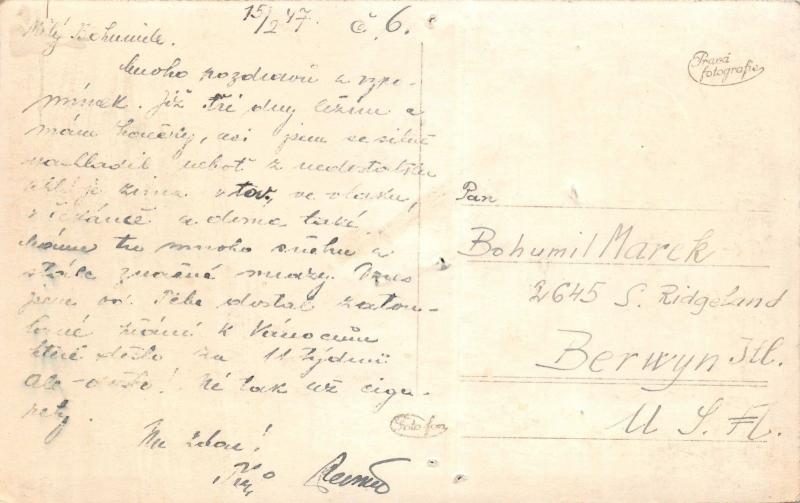 15/2 47. č. 6.
Milý Bohumile.
Mnoho pozdravů a vzpo-
mínek. Již tři dny ležím a
mám horečky, asi jsem se silně
nachladil neboť z nedostatku
uhlí je zima v tov., ve vlaku,
v čekárně a doma také.
Máme tu mnoho sněhu a
stále značné mrazy. Dnes
jsem od Tebe dostal
přání k Vánocům
které došlo za 11 týdnů
ale - došlo! Né tak už ciga-
rety.
Na zdar!
Pravá
fotografie
Foto-fon
Pan
Bohumil Marek
2645 S. Ridgeland
Berwyn Ill.
U. S. A.